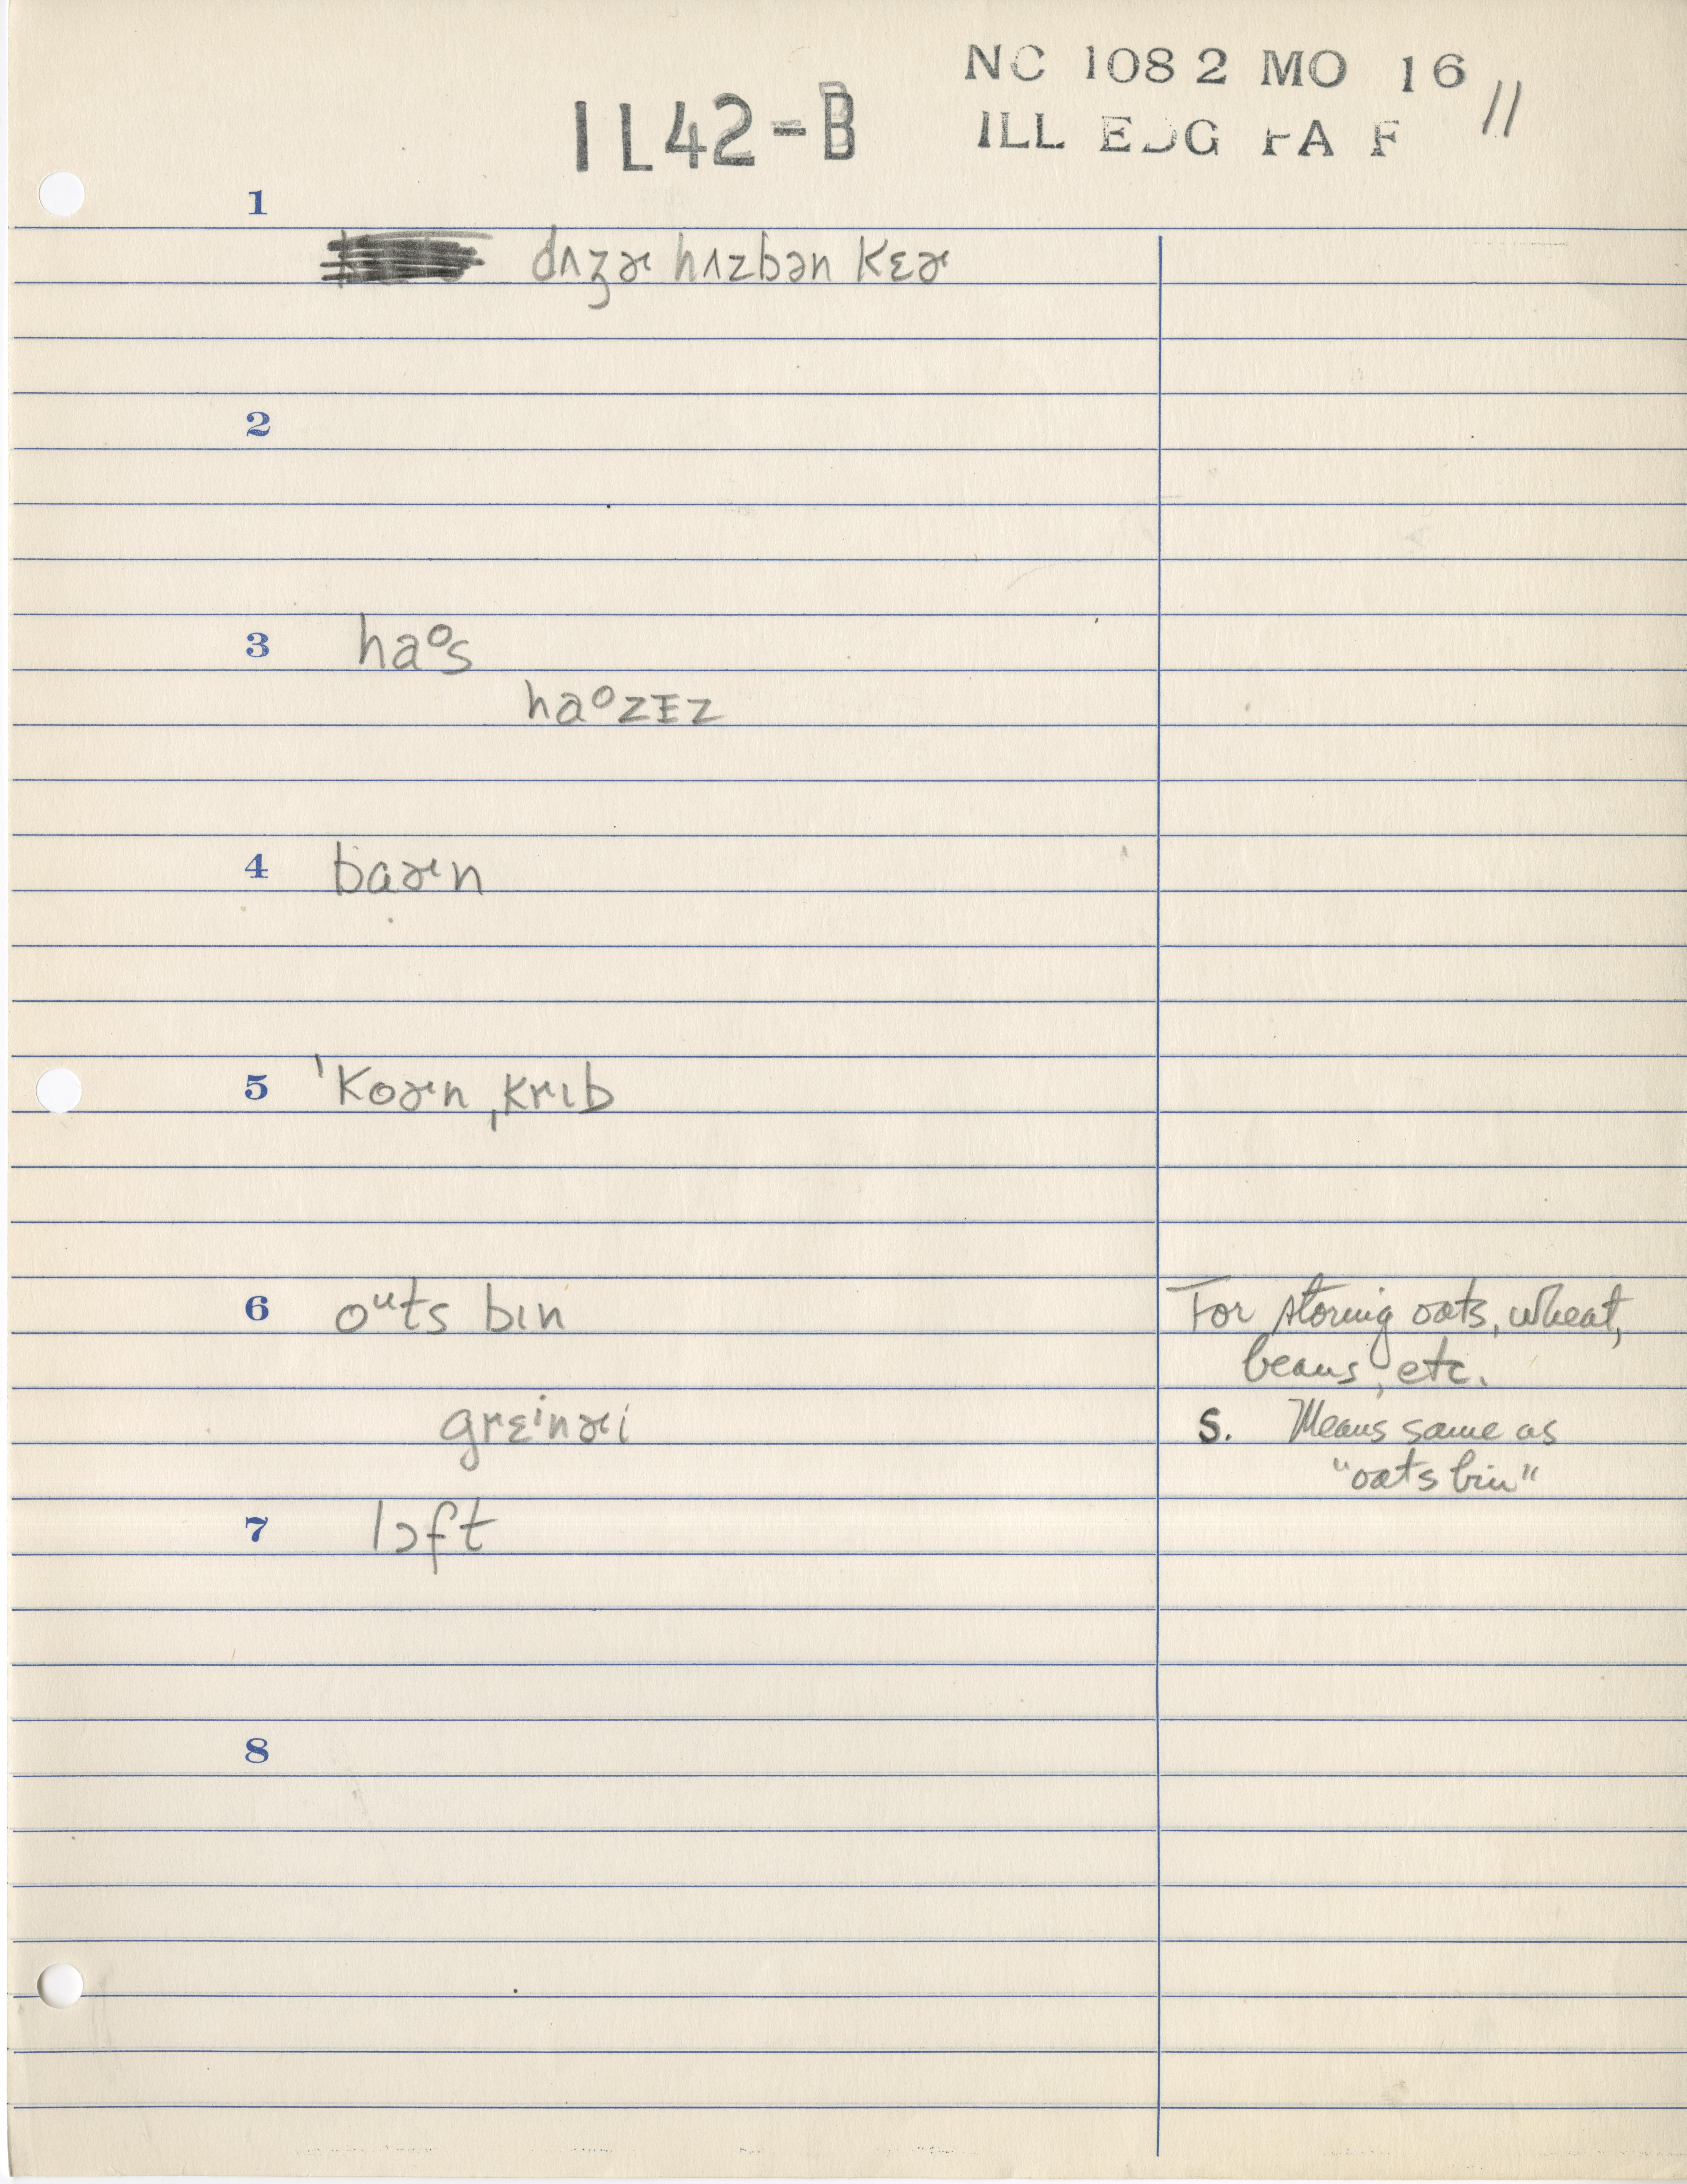 NC 1082 MO 16
IL42-B
ILL EDG PA F 11
1
dʌzɚ hʌzbən kɛɚ
2
3 haºs
haºzᵻz
4 baɚn
5 ˈkoɚn ˌkrɪb
6 oᵘts bɪn For storing oats, wheat,
beans, etc.
grɛⁱnɚi S. Means same as
"oats bin"
7 lɔft
8